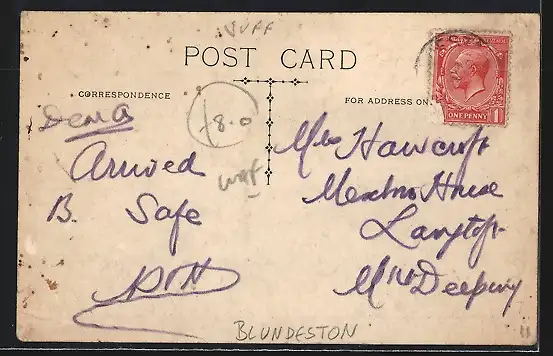 SUFF
POST CARD
CORRESPONDENCE
FOR ADDRESS ON
ONE PENNY 1
18.0
Dear
Arrived
B. Safe
Mrs Hawcroft
House
Langtoft
Mkt Deeping
BLUNDESTON